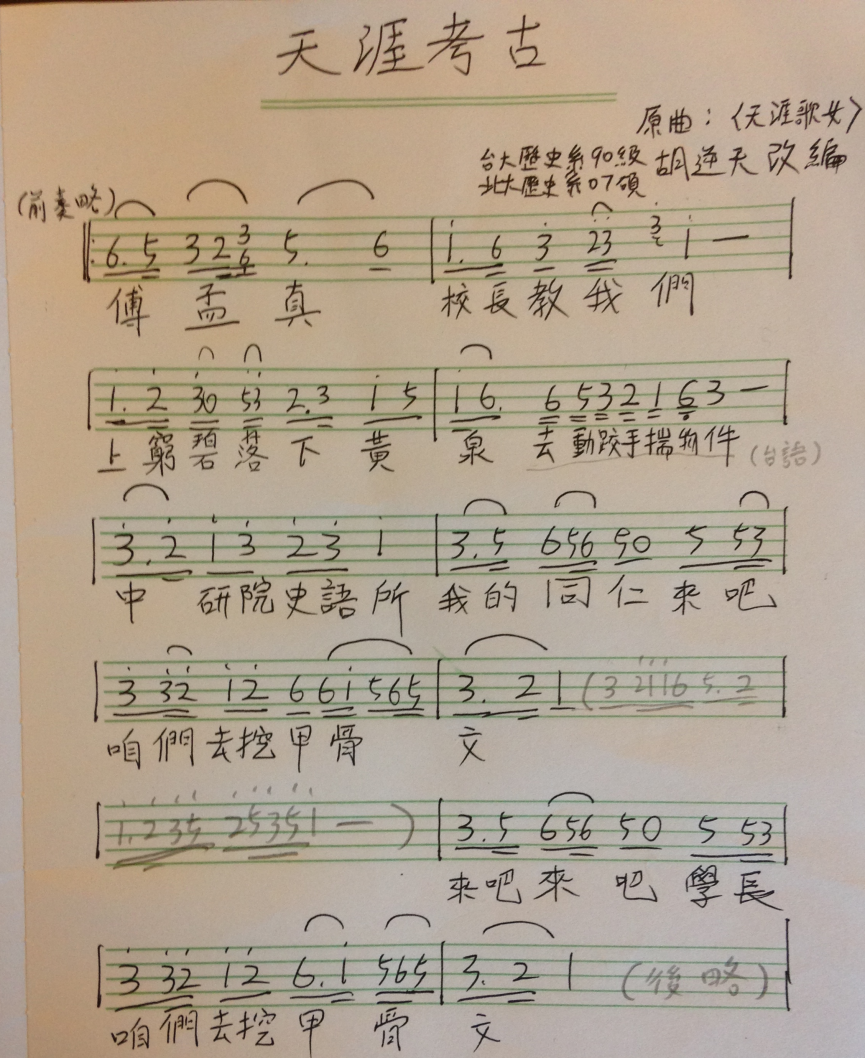 天涯考古
原曲：〈天涯歌女〉
台大歷史系90級
北大歷史系07碩
胡逆天改編
(前奏略)
6. 5 3 2 3 6 5. 6 1. 6 3 23 3 1 —
傅孟真 校長教我們
1. 2 30 53 2.3 1 5 1 6. 6 5 3 2 1 6 3 —
上窮碧落下黃泉 去動跤手揣物件 (台語)
3. 2 1 3 2 3 1 3. 5 656 50 5 53
中研院史語所 我的同仁來吧
3 32 12 6 61 565 3. 2 1 (3 2116 5. 2
咱們去挖甲骨文
1. 235 25351 — ) 3. 5 656 50 5 53
來吧來吧學長
3 32 12 6. 1 565 3. 2 1 (後略)
咱們去挖甲骨文